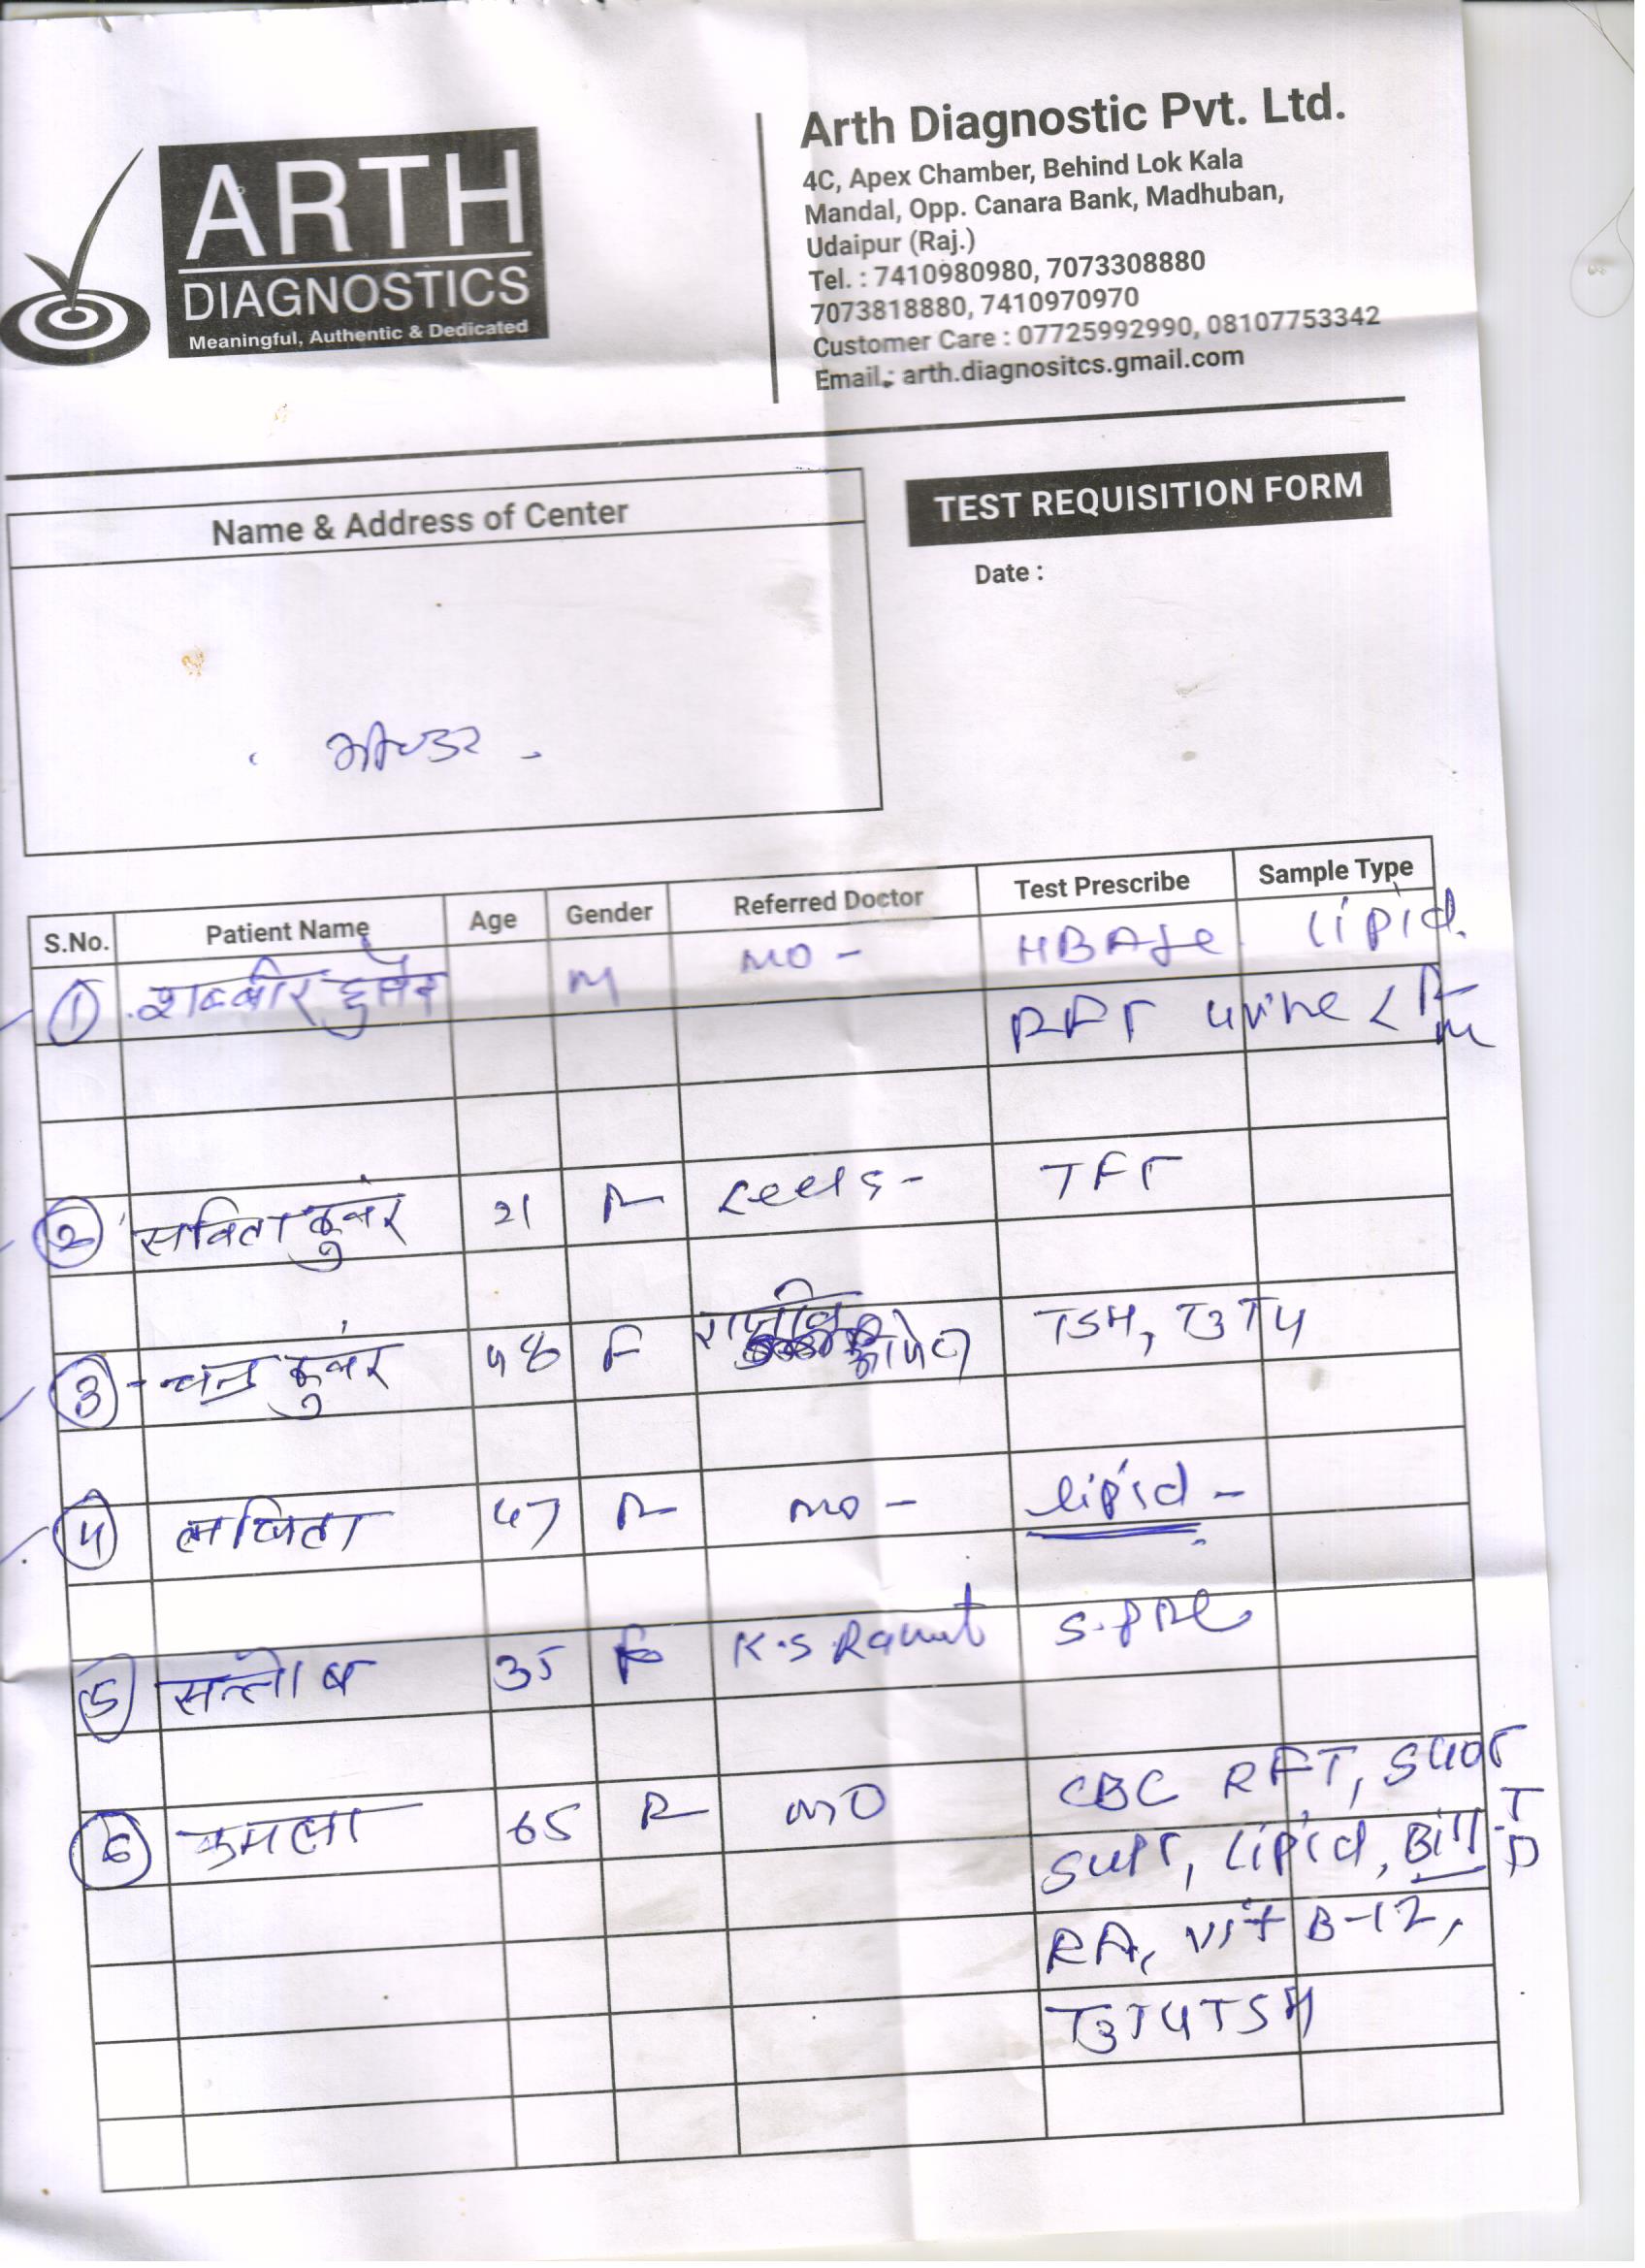 ARTH
DIAGNOSTICS
Meaningful, Authentic & Dedicated
Arth Diagnostic Pvt. Ltd.
4C, Apex Chamber, Behind Lok Kala
Mandal, Opp. Canara Bank, Madhuban,
Udaipur (Raj.)
Tel. : 7410980980, 7073308880
7073818880, 7410970970
Customer Care : 07725992990, 08107753342
Email : arth.diagnositcs.gmail.com
Name & Address of Center
TEST REQUISITION FORM
Date :
भीण्डर
S.No. Patient Name Age Gender Referred Doctor Test Prescribe Sample Type
1 शब्बीर हुसैन M MO - lipid.
RFT urine
2 सविता कुवंर 21 F TFT
3 चन्द्र कुवंर 48 F TSH, T3 T4
4 ललिता 47 F MO - lipid -
5 सन्तोष 35 F K.S Rawat
6 कमला 65 F MO CBC RFT, SGOT
SGPT, Lipid, Bill T D
RA, Vit B-12,
T3 T4 TSH